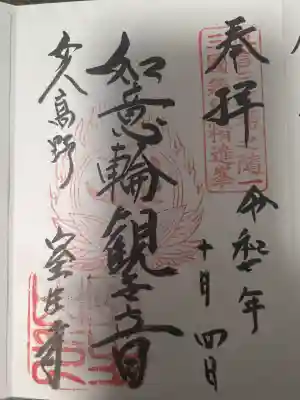 奉拝
令和七年
十月四日
如意輪観音
女人高野
室生寺